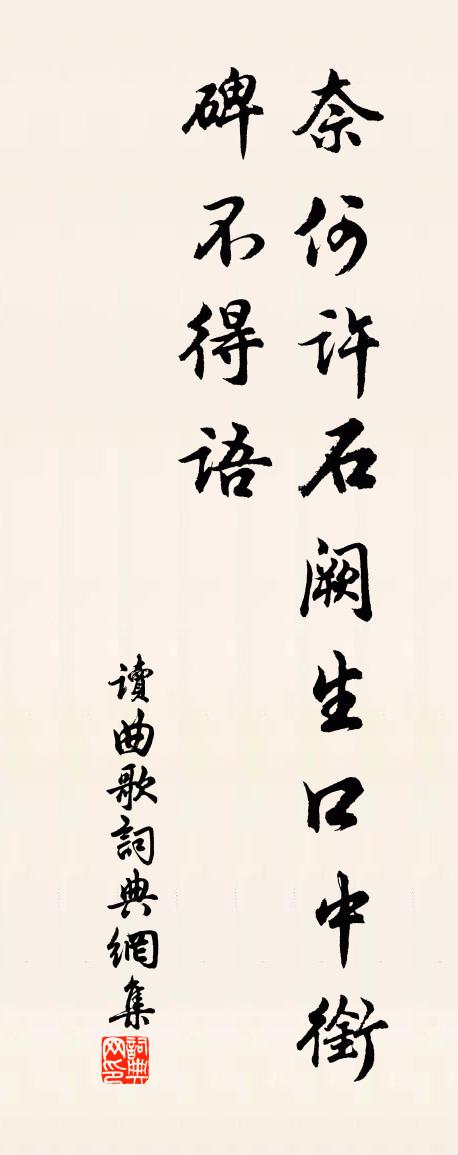 奈何许石阙生口中銜
碑不得语
讀曲歌詞典網集
詞典网印